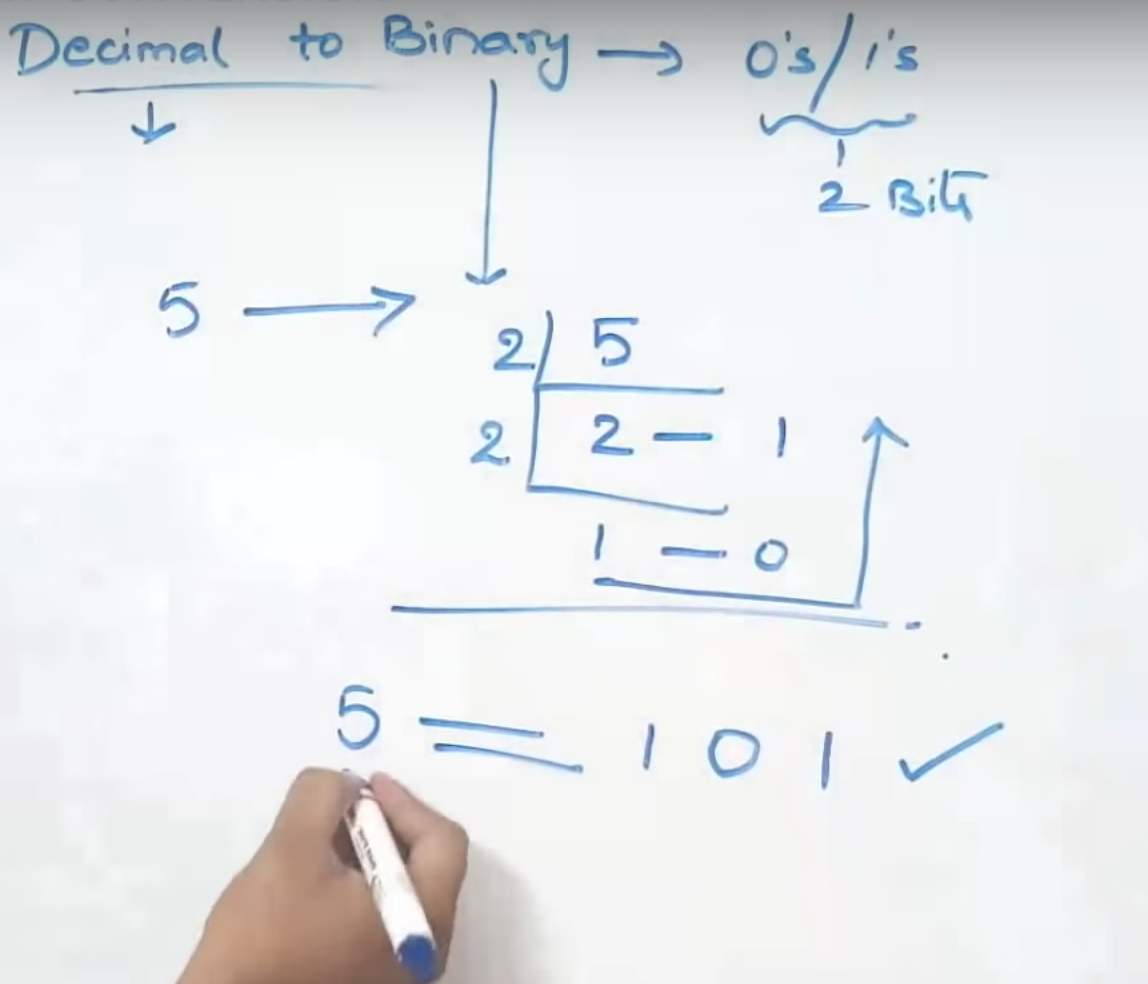 Decimal to Binary → 0's/1's
2 Bits
5 →
2 5
2 2 - 1
1 - 0
5 = 101 ✓